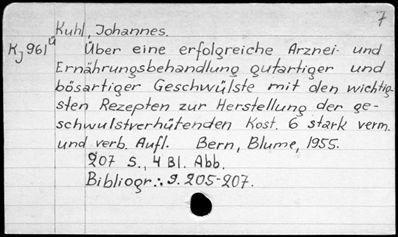 7
Kuhl, Johannes.
Kj 961ü Über eine erfolgreiche Arznei- und
Ernährungsbehandlung gutartiger und
bösartiger Geschwülste mit den wichtig-
sten Rezepten zur Herstellung der ge-
schwulstverhütenden Kost. 6 stark verm.
und verb. Aufl. Bern, Blume, 1955.
207 S., 4 Bl. Abb.
Bibliogr.: S. 205-207.